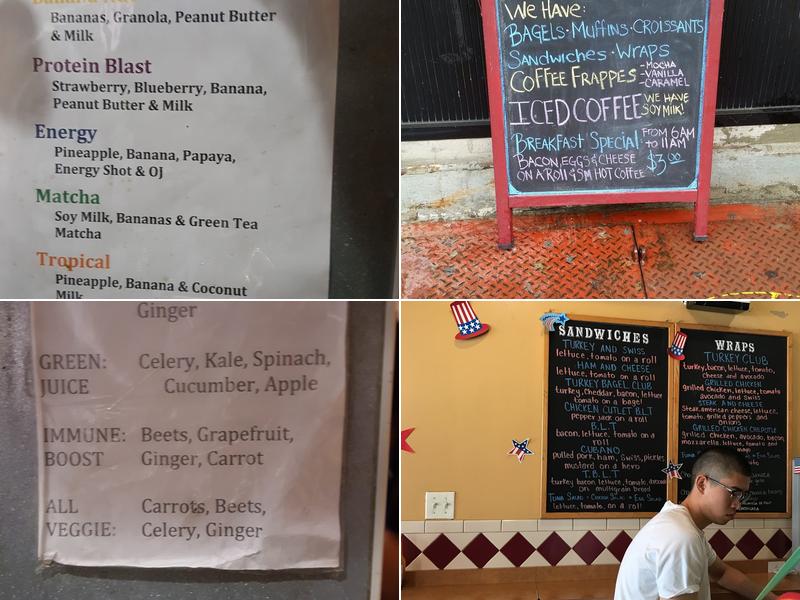 Banana Nut
Bananas, Granola, Peanut Butter
& Milk
Protein Blast
Strawberry, Blueberry, Banana,
Peanut Butter & Milk
Energy
Pineapple, Banana, Papaya,
Energy Shot & OJ
Matcha
Soy Milk, Bananas & Green Tea
Matcha
Tropical
Pineapple, Banana & Coconut
Milk
WE HAVE:
BAGELS·MUFFINS·CROISSANTS
SANDWICHES·WRAPS
COFFEE FRAPPES -MOCHA
-VANILLA
-CARAMEL
ICED COFFEE WE HAVE
SOY MILK!
BREAKFAST SPECIAL FROM 6AM
to 11AM
BACON, EGGS & CHEESE
ON A ROLL & SM HOT COFFEE $3.00
Ginger
GREEN: Celery, Kale, Spinach,
JUICE Cucumber, Apple
IMMUNE: Beets, Grapefruit,
BOOST Ginger, Carrot
ALL Carrots, Beets,
VEGGIE: Celery, Ginger
SANDWICHES
TURKEY AND SWISS
lettuce, tomato on a roll
HAM AND CHEESE
lettuce, tomato on a roll
TURKEY BAGEL CLUB
turkey, cheddar, bacon, lettuce
tomato on a bagel
CHICKEN CUTLET BLT
pepper jack on a roll
B.L.T
bacon, lettuce, tomato on a
roll
CUBANO
pulled pork, ham, swiss, pickles
mustard on a hero
T.B.L.T
turkey bacon, lettuce, tomato, avocado
on multigrain bread
TUNA SALAD · CHICKEN SALAD · EGG SALAD
lettuce, tomato, on a roll
WRAPS
TURKEY CLUB
turkey, bacon, lettuce, tomato,
cheese and avocado
GRILLED CHICKEN
grilled chicken, lettuce, tomato
avocado and swiss
STEAK AND CHEESE
Steak, american cheese, lettuce,
tomato, grilled peppers and
onions
GRILLED CHICKEN CHIPOTLE
grilled chicken, avocado, bacon,
mozzarella, lettuce, tomato and
mayo